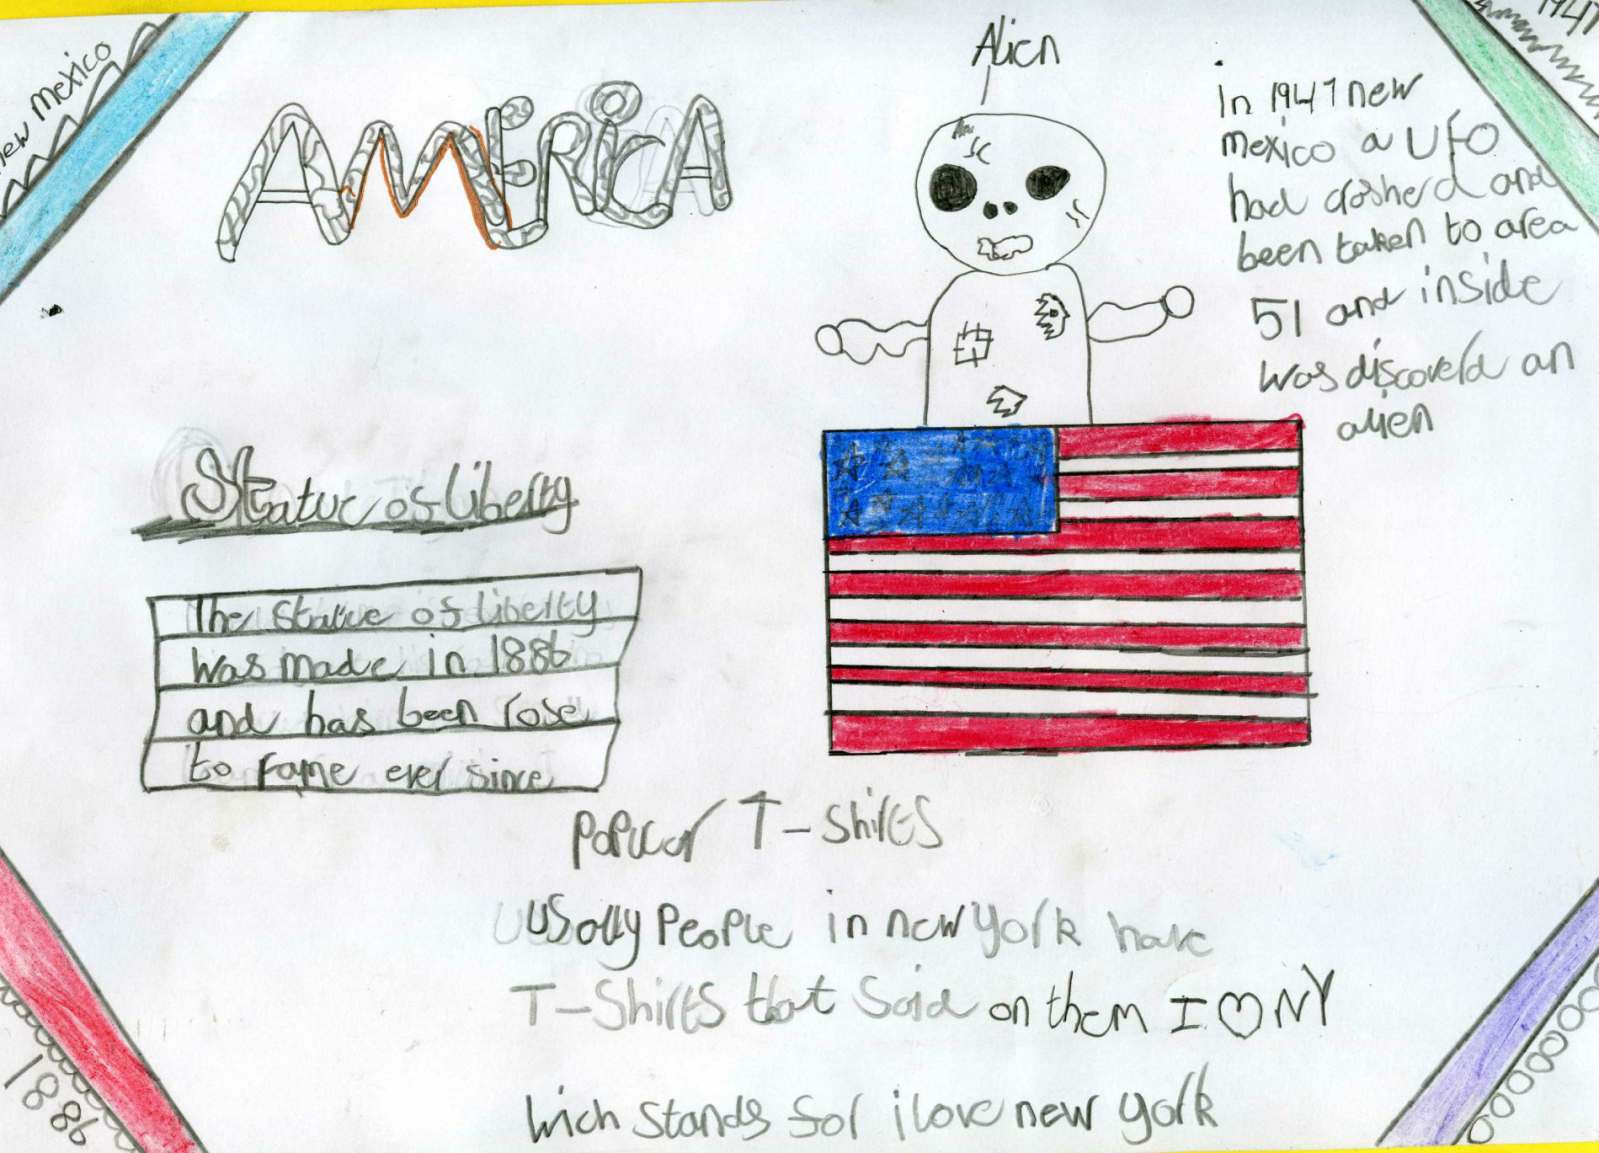 new mexico
1947
AMERICA
Alien
In 1947 new
mexico a UFO
had crasherd and
been taken to area
51 and inside
was discoverd an
alien
Statue of liberty
The statue of liberty
was made in 1886
and has been rose
to fame ever since
popular T-shirts
Usolly people in new york have
T-shirts that said on them I ♡ NY
wich stands for i love new york
1886